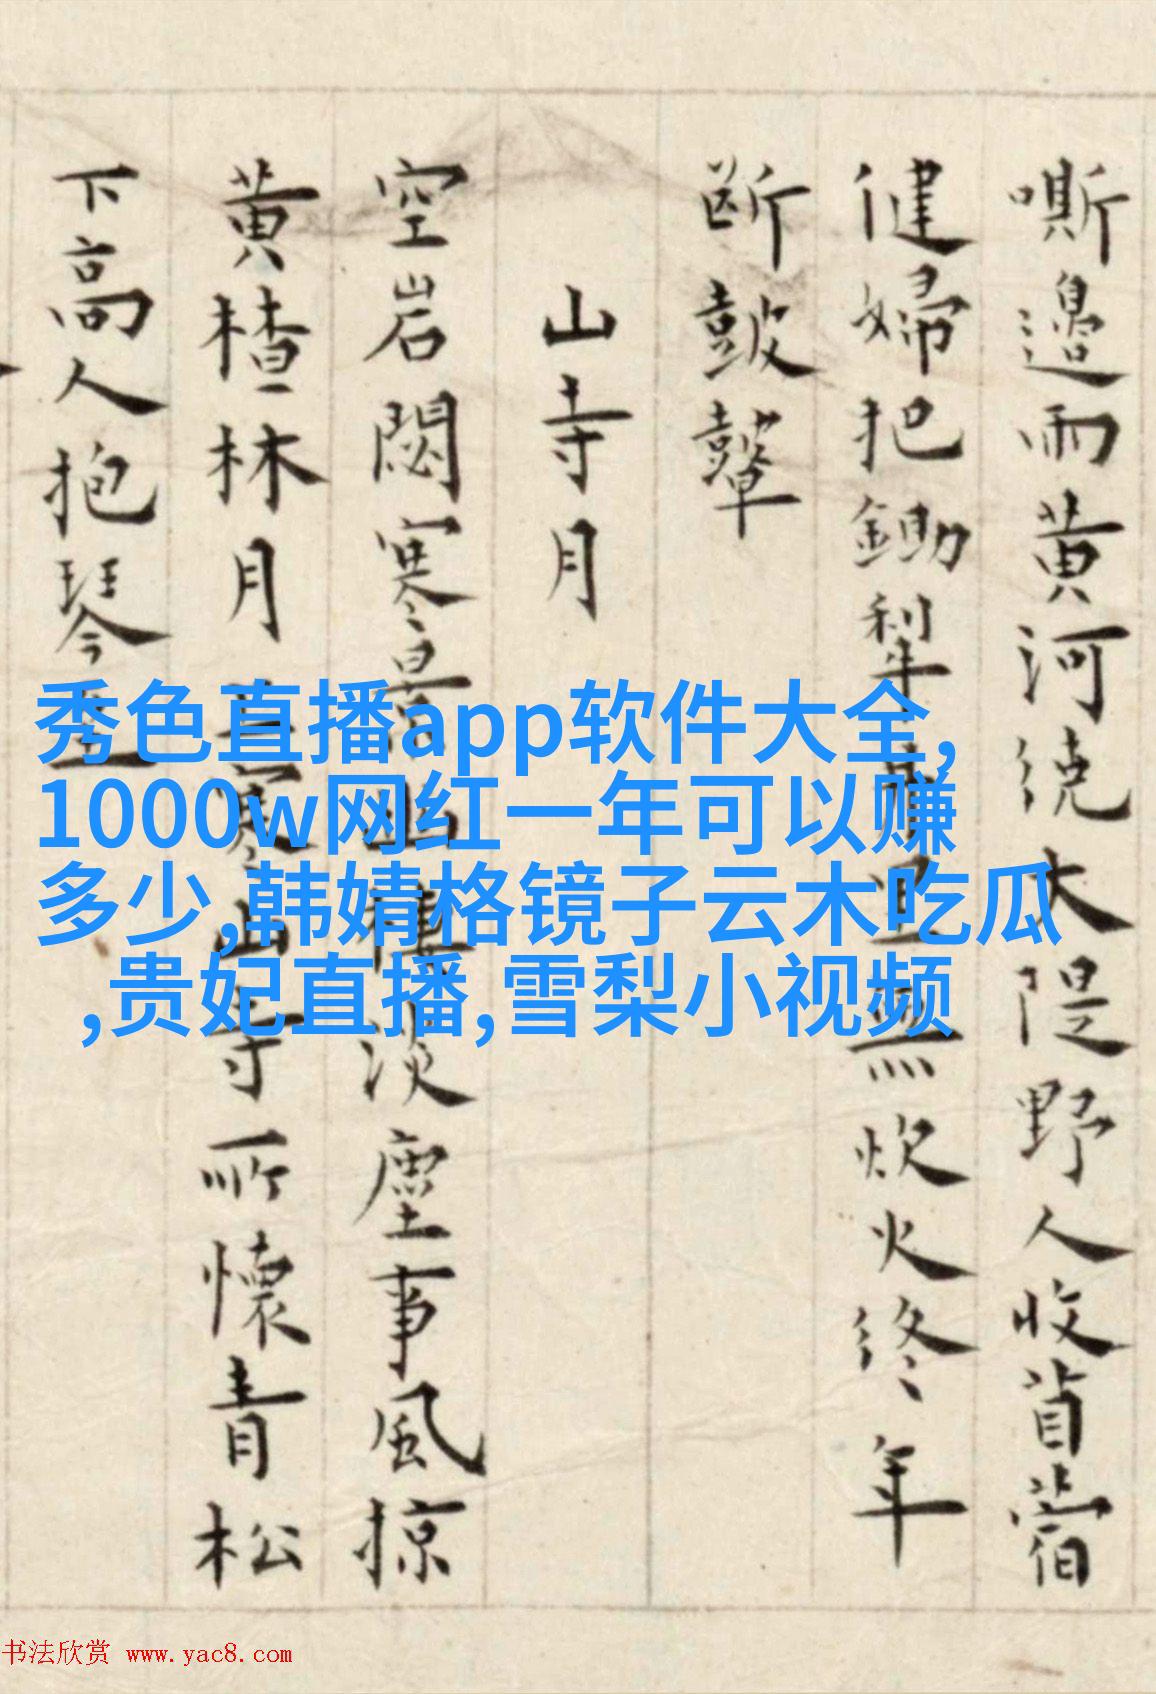 嘶邊雨黄河繞大隄野人收苜蓿
健婦把鋤犁里無炊火終年
断鼓鼙
山寺月
空岩閟寒景淡塵事風掠
黄楂林月寒山寺所懷青松
下高人抱琴
秀色直播app软件大全,
1000w网红一年可以赚
多少,韩婧格镜子云木吃瓜
,贵妃直播,雪梨小视频
书法欣赏 www.yac8.com